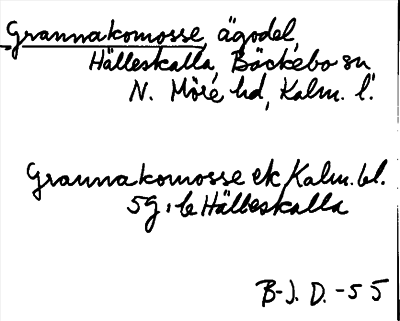 Grannakomosse, ägodel,
Hälleskalla, Bäckebo sn
N. Möre hd, Kalm. l.
Grannakomosse ek Kalm. bl.
5g, e Hälleskalla
B-J. D. -55